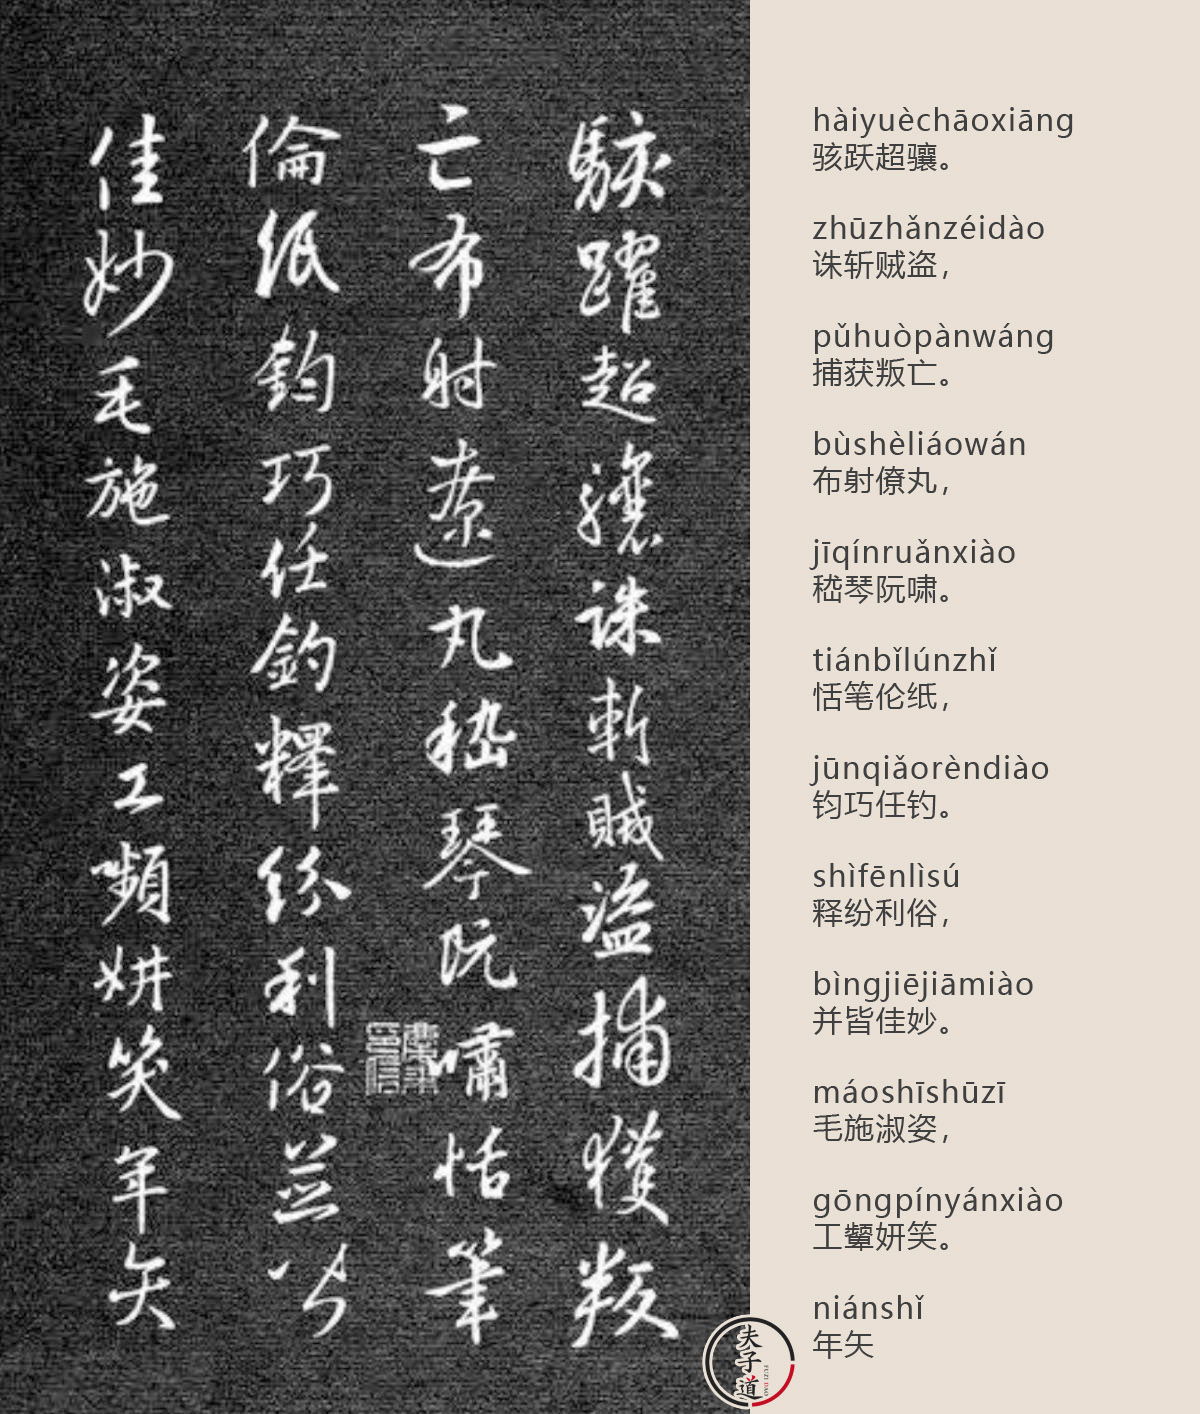 駭躍超驤誅斬賊盜捕獲叛
亡布射遼丸嵇琴阮嘯恬筆
倫紙鈞巧任釣釋紛利俗並皆
佳妙毛施淑姿工嚬妍笑年矢
hàiyuèchāoxiāng
骇跃超骧。
zhūzhǎnzéidào
诛斩贼盗，
pǔhuòpànwáng
捕获叛亡。
bùshèliáowán
布射僚丸，
jīqínruǎnxiào
嵇琴阮啸。
tiánbǐlúnzhǐ
恬笔伦纸，
jūnqiǎorèndiào
钧巧任钓。
shìfēnlìsú
释纷利俗，
bìngjiējiāmiào
并皆佳妙。
máoshīshūzī
毛施淑姿，
gōngpínyánxiào
工颦妍笑。
niánshǐ
年矢
夫子道
FUZI DAO